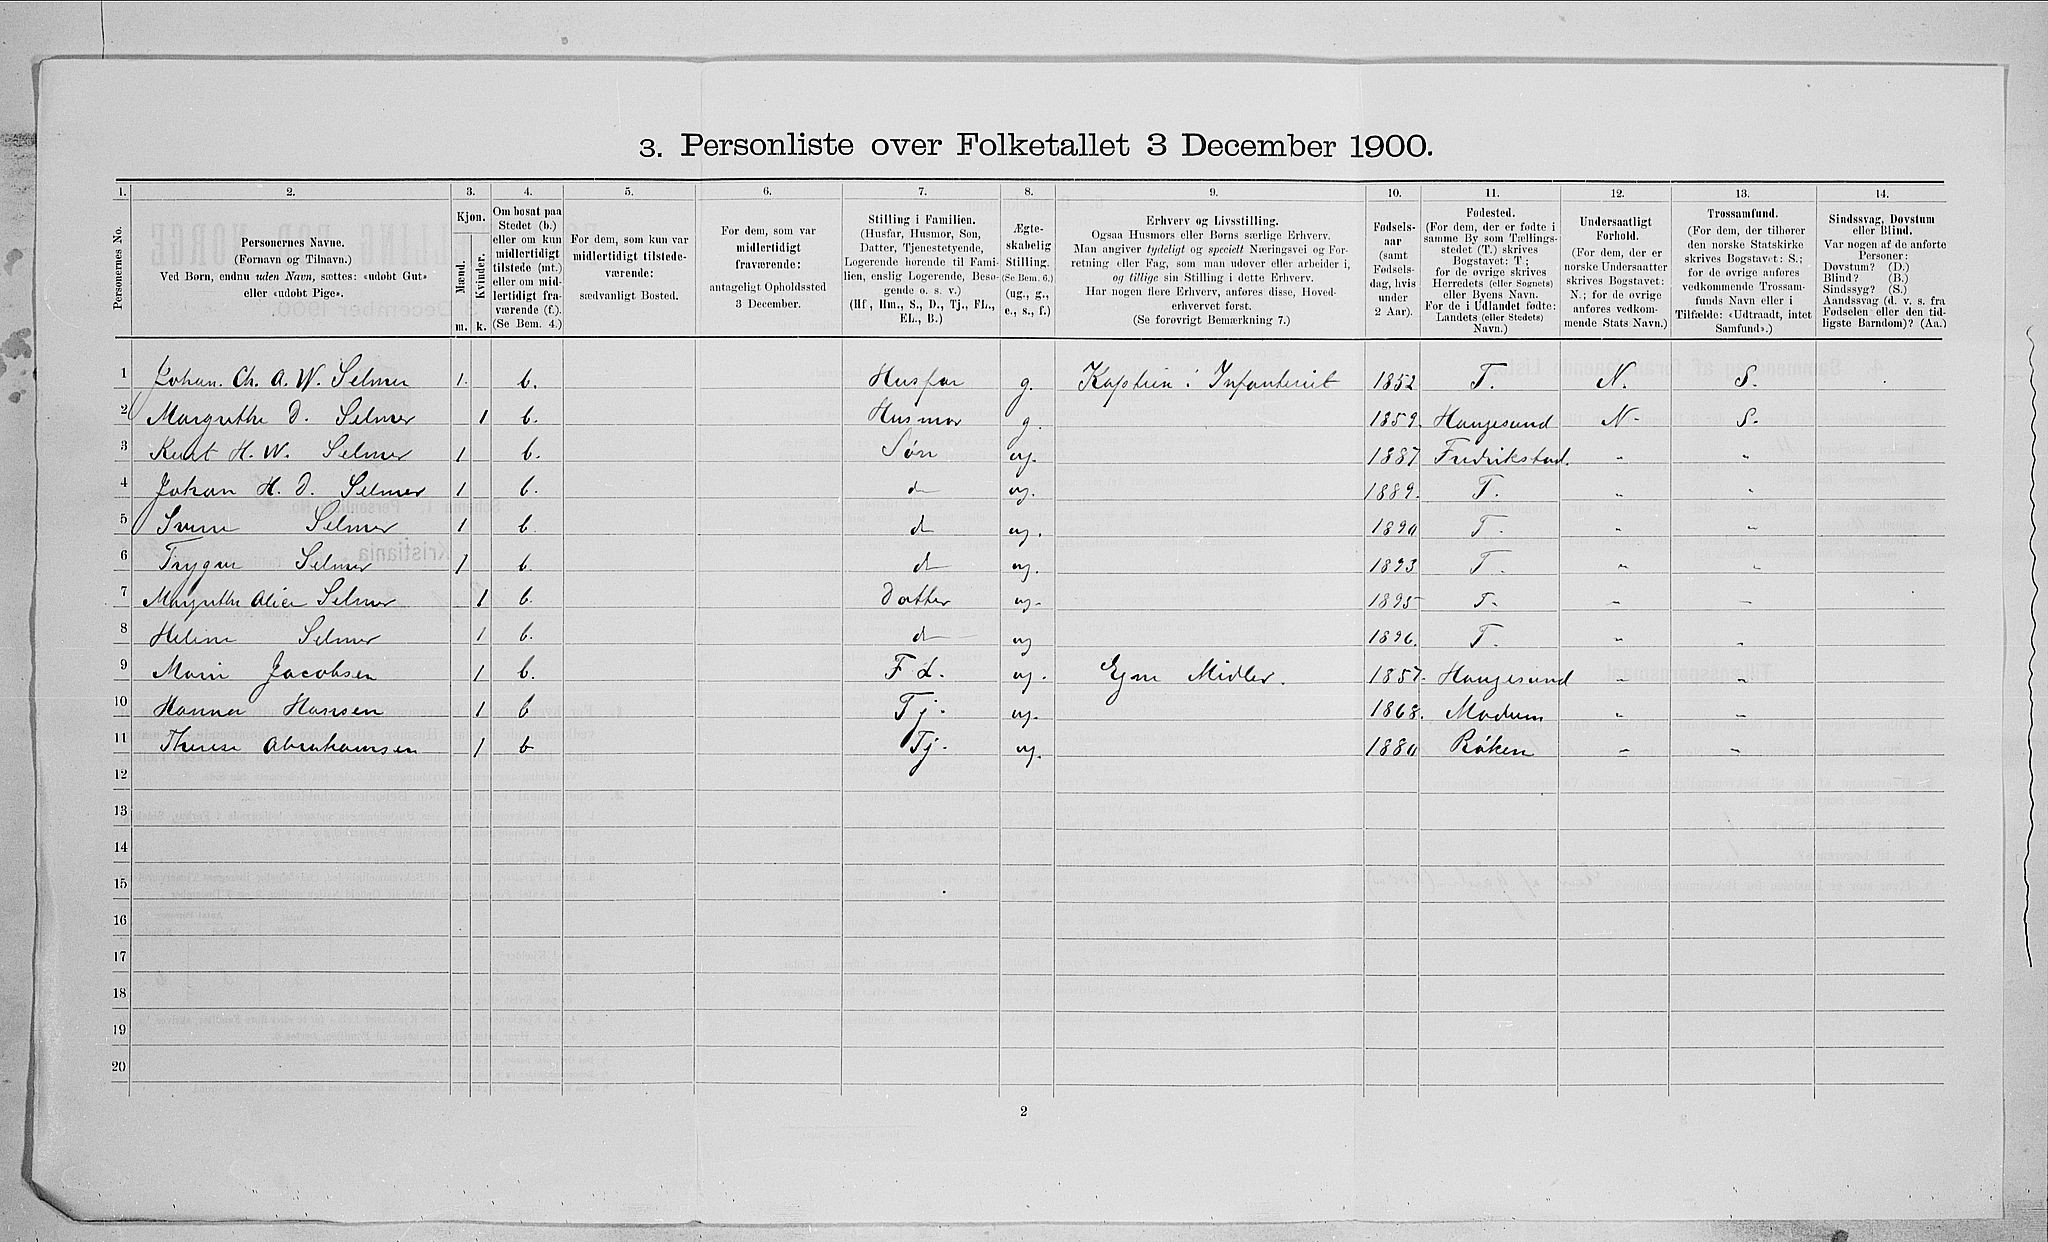 3. Personliste over Folketallet 3 December 1900.
1. 2. 3. 4. 5. 6. 7. 8. 9. 10. 11. 12. 13. 14.
Personernes No.
Personernes Navne.
(Fornavn og Tilnavn.)
Ved Børn, endnu uden Navn, sættes: «udøbt Gut»
eller «udøbt Pige».
Kjøn.
Mænd.
Kvinder.
m. k.
Om bosat paa
Stedet (b.)
eller om kun
midlertidigt
tilstede (mt.)
eller om mid-
lertidigt fra-
værende (f.).
(Se Bem. 4.)
For dem, som kun var
midlertidigt tilstede-
værende:
sædvanligt Bosted.
For dem, som var
midlertidigt
fraværende:
antageligt Opholdssted
3 December.
Stilling i Familien.
(Husfar, Husmor, Søn,
Datter, Tjenestetyende,
Logerende hørende til Fami-
lien, enslig Logerende, Besø-
gende o. s. v.)
(Hf, Hm., S., D., Tj., FL.,
EL., B.)
Ægte-
skabelig
Stilling.
(Se Bem. 6.)
(ug., g.,
e., s., f.)
Erhverv og Livsstilling.
Ogsaa Husmors eller Børns særlige Erhverv.
Man angiver tydeligt og specielt Næringsvei og For-
retning eller Fag, som man udøver eller arbeider i,
og tillige sin Stilling i dette Erhverv.
Har nogen flere Erhverv, anføres disse, Hoved-
erhvervet først.
(Se forøvrigt Bemærkning 7.)
Fødsels-
aar
(samt
Fødsels-
dag, hvis
under
2 Aar).
Fødested.
(For dem, der er fødte i
samme By som Tællings-
stedet (T.) skrives
Bogstavet: T.;
for de øvrige skrives
Herredets (eller Sognets)
eller Byens Navn.
For de i Udlandet fødte:
Landets (eller Stedets)
Navn.)
Undersaatligt
Forhold.
(For dem, der er
norske Undersaatter
skrives Bogstavet:
N.; for de øvrige
anføres vedkom-
mende Stats Navn.)
Trossamfund.
(For dem, der tilhører
den norske Statskirke
skrives Bogstavet: S.;
for de øvrige anføres
vedkommende Trossam-
funds Navn eller i
Tilfælde: «Udtraadt, intet
Samfund».)
Sindssvag, Døvstum
eller Blind.
Var nogen af de anførte
Personer:
Døvstum? (D.)
Blind? (B.)
Sindssyg? (S.)
Aandssvag (d. v. s. fra
Fødselen eller den tid-
ligste Barndom)? (Aa.)
1 Johan. Ch. A. W. Selmer 1. b. Husfar g. Kaptein i Infanteriet 1852 T. N. S.
2 Margrethe D. Selmer 1 b. Husmor g. 1859. Haugesund N. S.
3 Knut H. W. Selmer 1 b. Søn ug. 1887 Fredrikstad. " "
4 Johan H. D. Selmer 1 b. do ug. 1889. T. " "
5 Svend Selmer 1 b. do ug. 1890 T. " "
6 Trygve Selmer 1 b. do ug. 1893 T. " "
7 Margrethe Alice Selmer 1 b. Datter ug. 1895 T. " "
8 Helene Selmer 1 b. do ug 1896. T. " "
9 Marie Jacobsen 1 b. F L. ug. Egne Midler. 1857. Haugesund " "
10 Hanna Hansen 1 b Tj. ug. 1868. Modum " "
11 Therese Abrahamsen 1 b Tj. ug. 1880 Røken " "
12
13
14
15
16
17
18
19
20
2